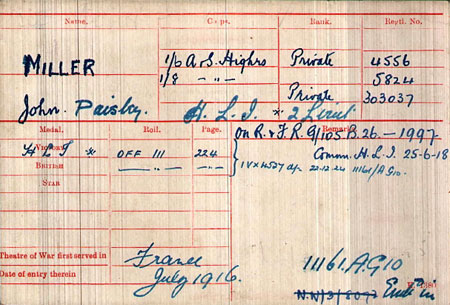 Name. Corps. Rank. Regtl. No.
MILLER 1/6 A & S. Highrs Private 4556
1/8 -"- 5824
Private 303037
John. Paisley. H. L. I. * 2/Lieut
Medal. Roll. Page. Remarks
on R. & F. R. 9/105 B. 26. — 1997.
Victory H L I * OFF 111 224 Comm. H. L. I. 25-6-18
British -"- -"- IV x 4527 22-12-24 11161/A Gro.
Star
Theatre of War first served in France
Date of entry therein July 1916.
11161. A G 10
N.W/3/